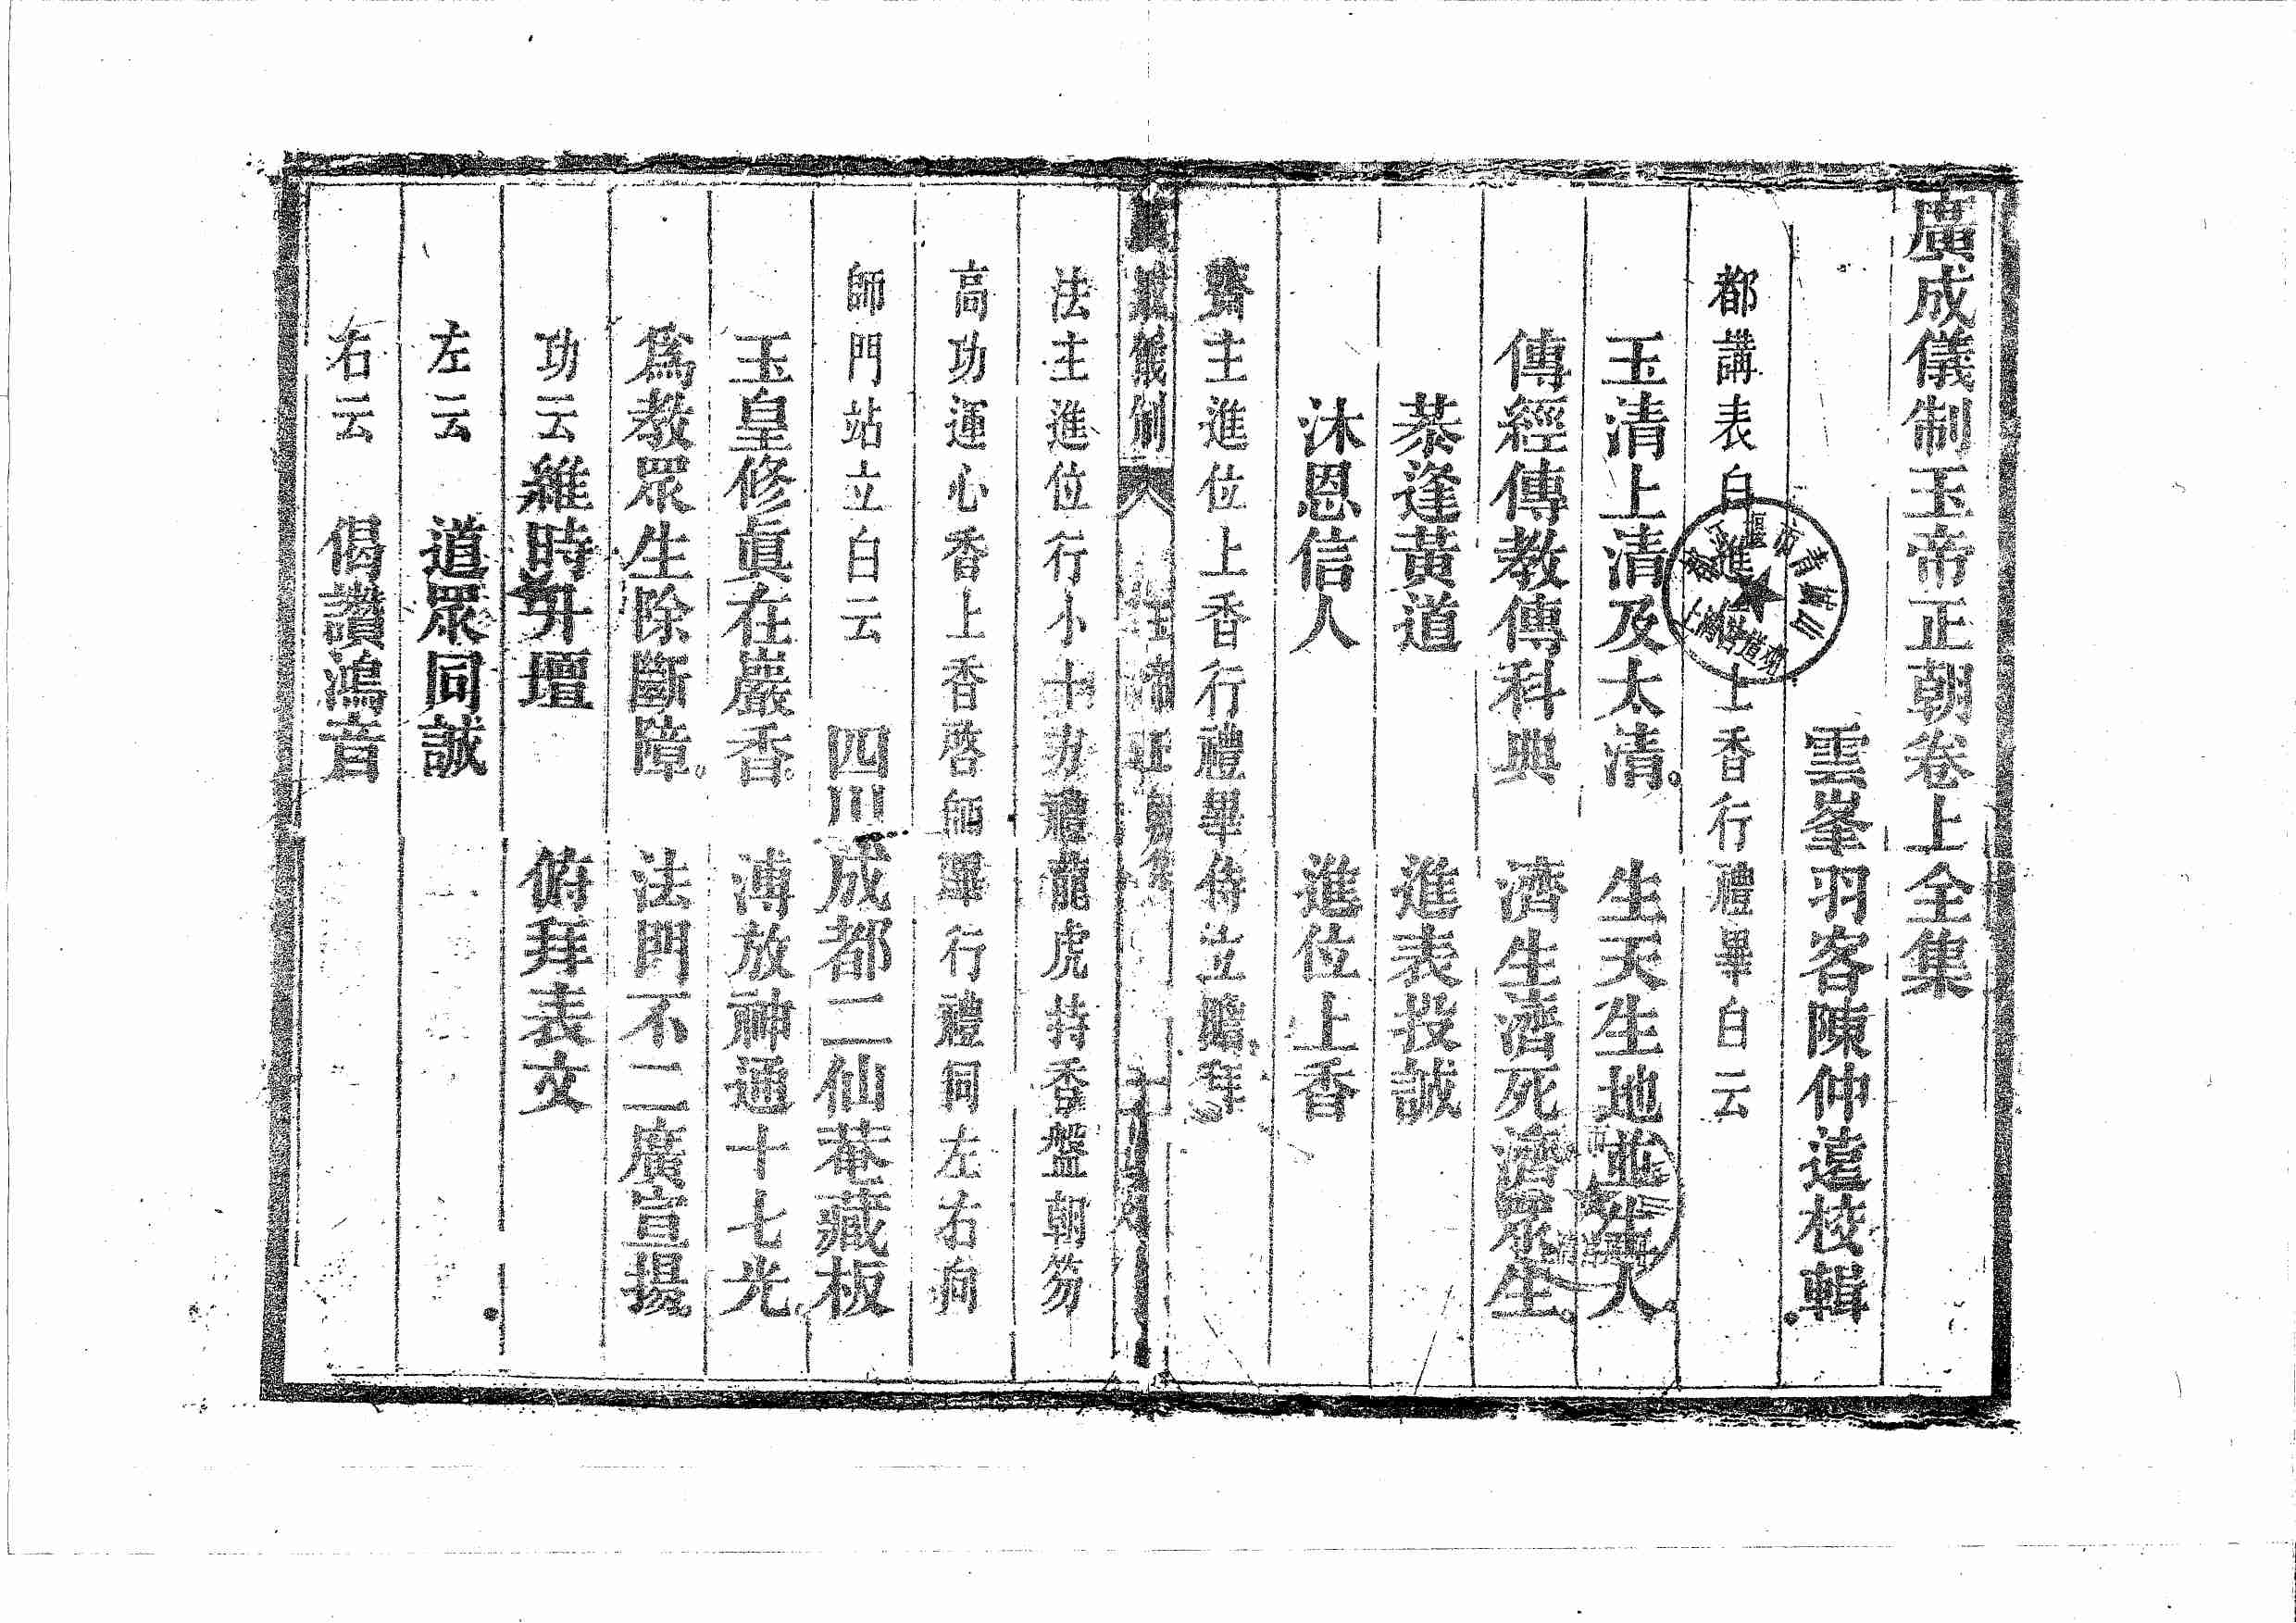 廣成儀制玉帝正朝卷上全集
雲峯羽客陳仲遠校輯
都講表白進位上香行禮畢白云
玉清上清及太清。生天生地並生人
傳經傳教傳科典 濟生濟死濟眾生。
恭逢黃道 進表投誠
沐恩信人 進位上香
齋主進位上香行禮畢侍立瞻拜
廣成儀制 玉帝正朝全集
法主進位行小十方禮龍虎持香盤朝笏
高功運心香上香啓師畢行禮同左右向
師門站立白云 四川成都二仙菴藏板
玉皇修眞在巖香。溥放神通十七光。
爲教眾生除斷障。法門不二廣宣揚
功云維時升壇 俯拜表文
左云 道眾同誠
右云 偈讚鴻音